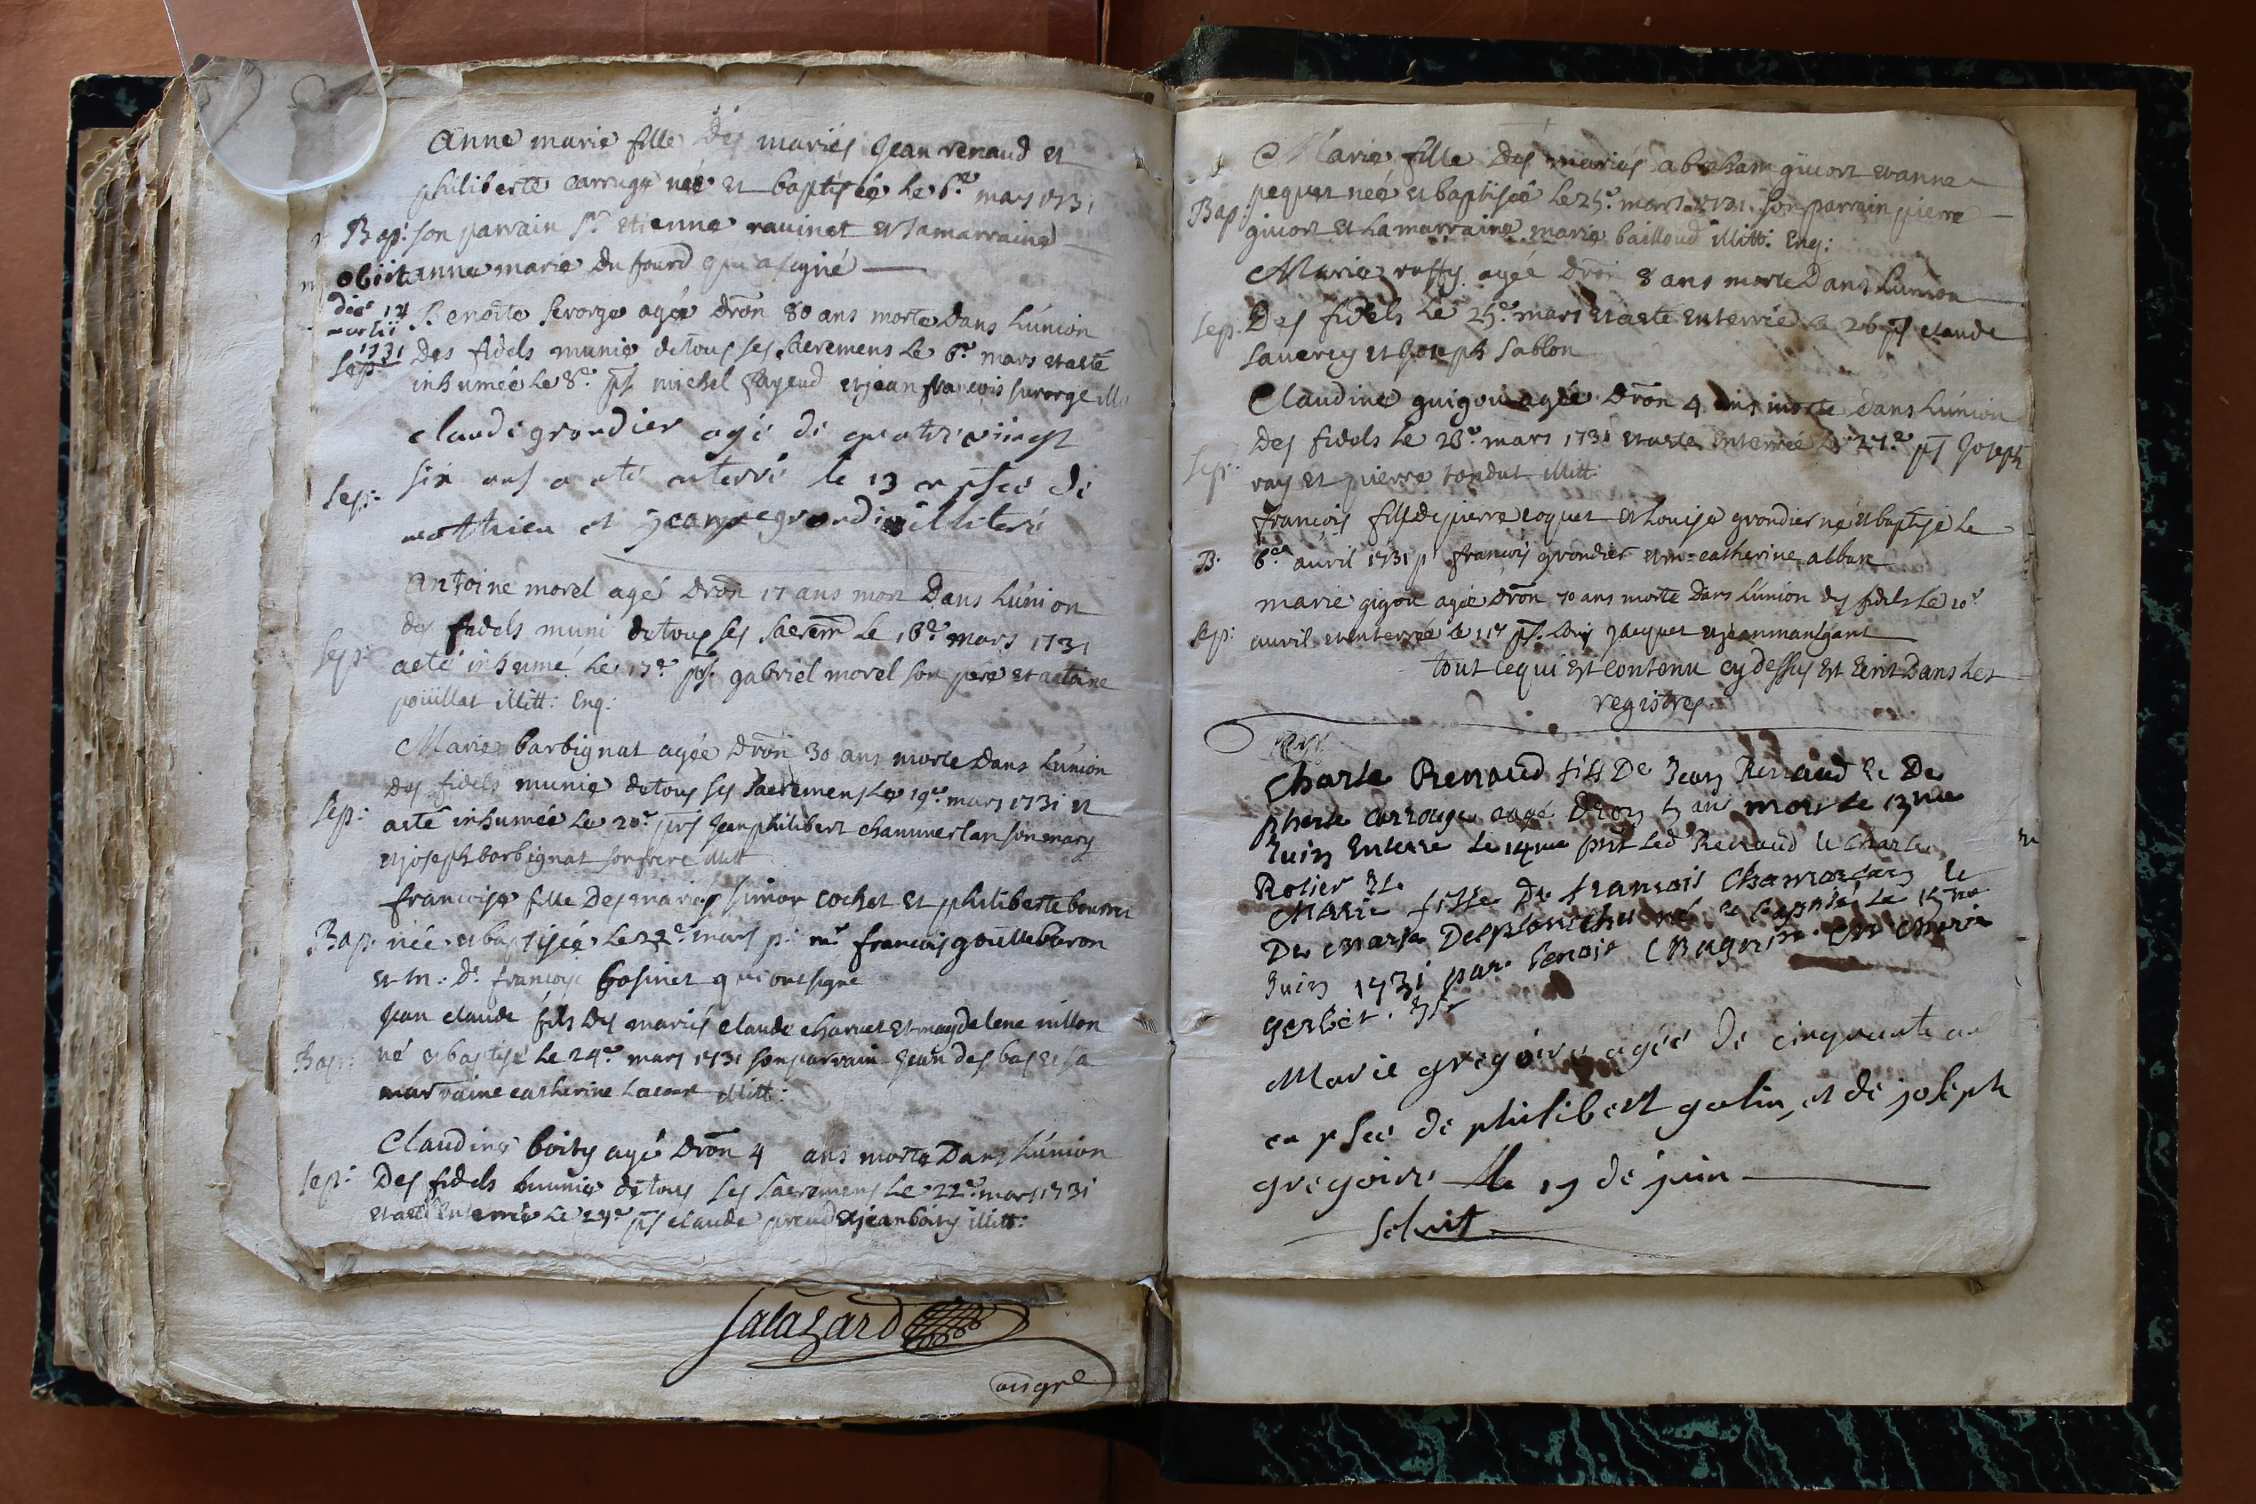 Anne marie fille Des mariés Jean renaud et
philiberte carruge neé et baptiseé Le 6.e mars 1731
Bap: son parrain Sr. etienne rauinet et Samarraine
obiit anne marie Du fourd qui a signé
die 14 Benoite Perorge ageé Dron 80 ans morte Dans Lúnion
martii
1731 Des fidels munie detous ses Sacremens Le 6.e mars etaeté
Sep:
inhumeé Le 8.e pñs michel Payeud etjean françois perorge ill
claude grondier agé de quatrevingt
Sep: six ans a eté enterré le 13 en psce de
mathieu et grondier illiteré
Antoine morel agé Dron 17 ans mort Dans Lúnion
des fidels muni detous ses Sacrem Le 16.e mars 1731
Sep: aeté inhumé Le 17.e pñs. gabriel morel son pere et antoine
poüillat illitt: Enq:
Marie barbignat ageé Dron 30 ans morte Dans Lúnion
Des fidels munie detous ses Sacremens Le 19.e mars 1731 et
Sep: aeté inhumeé Le 20.e pñs Jean philibert chamerlan son mary
etjoseph barbignat sonfrere illitt
françoise fille Des mariés Simon cochet et philiberte
Bap: neé et baptiseé Le 22.e mars p: mr françois goüillebaron
et m: De. françoise bosinet qui ontsigné
Jean claude fils Des mariés claude charuet et magdelene millon
Bap: né et baptisé Le 24.e mars 1731 sonparrain Jean des bas et sa
marraine catherine Lacour illitt:
Claudine boisy agé Dron 4 ans morte Dans Lúnion
Sep: Des fidels munie detous Les sacremens Le 22.e mars 1731
etaeté Enterreé Le 24.e pñs claude preud etjean boisy illitt:
Salazard
Marie fille Des mariés abraham guiort etanne
pequet neé et baptiseé Le 25.e mars 1731. son parrain pierre
Bap: guiort et La marraine marie bailloud illitt: Enq:
Marie ruffy ageé Dron 8 ans morte Dans Lunion
Sep: Des fidels Le 25.e mars etaeté enterreé Le 26 pñs claude
Sauerey et Joseph Sablon
Claudine guigou ageé Dron 4 ans morte Dans Lúnion
Des fidels Le 26.e mars 1731 etaeté enterreé Le 27.e pñs Joseph
Sep: ray et pierre tondut illitt:
françois fils De pierre coquet et Louise grondier né et baptisé Le
B. 6.e auril 1731 p françois grondier et m. catherine alban
marie gigou ageé Dron 70 ans morte Dans Lúnion des fidels Le 10.e
Sep: auril et enterreé Le 11.e pñs. Louis Jacquet etjean
tout cequi est contenu cy dessus est Ecrit Dans Les
registres
Charle Renaud fils De Jean Renaud Et De
pherte carrouge eagé Dron 5 ans mort Le 13me
Juin Enterre Le 14me pnt Led Renaud le charle
Rotier
Marie fille De francois Chamorlan le
De Marie Desplanche né et baptisé Le 15me
Juin 1731 par Benoit Chagnin Et Marie
gerbet.
Marie gregoire ageé de cinquante an
en psce de philibert golin, et de joseph
gregoire le 17 de juin